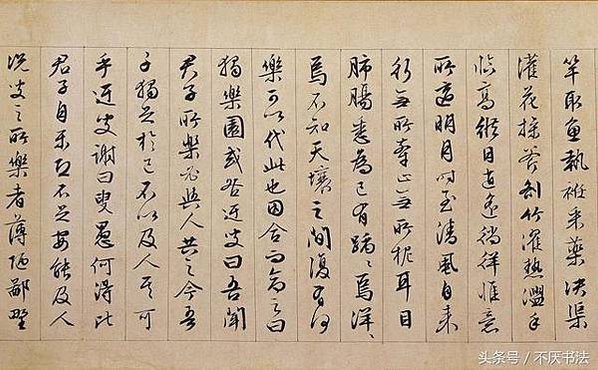 竿取魚執衽采藥決渠
灌花操斧剖竹濯熱盥手
臨高縱目逍遙徜徉惟意
所適明月時至清風自來
行無所牽止無所柅耳目
肺腸悉為己有踽〻焉洋〻
焉不知天壤之間復有何
樂可以代此也因合而命之曰
獨樂園或咎迂叟曰吾聞
君子所樂必與人共之今吾
子獨足於己不以及人其可
乎迂叟謝曰叟愚何得比
君子自樂恐不足安能及人
況叟之所樂者薄陋鄙野
头条号 / 不厌书法